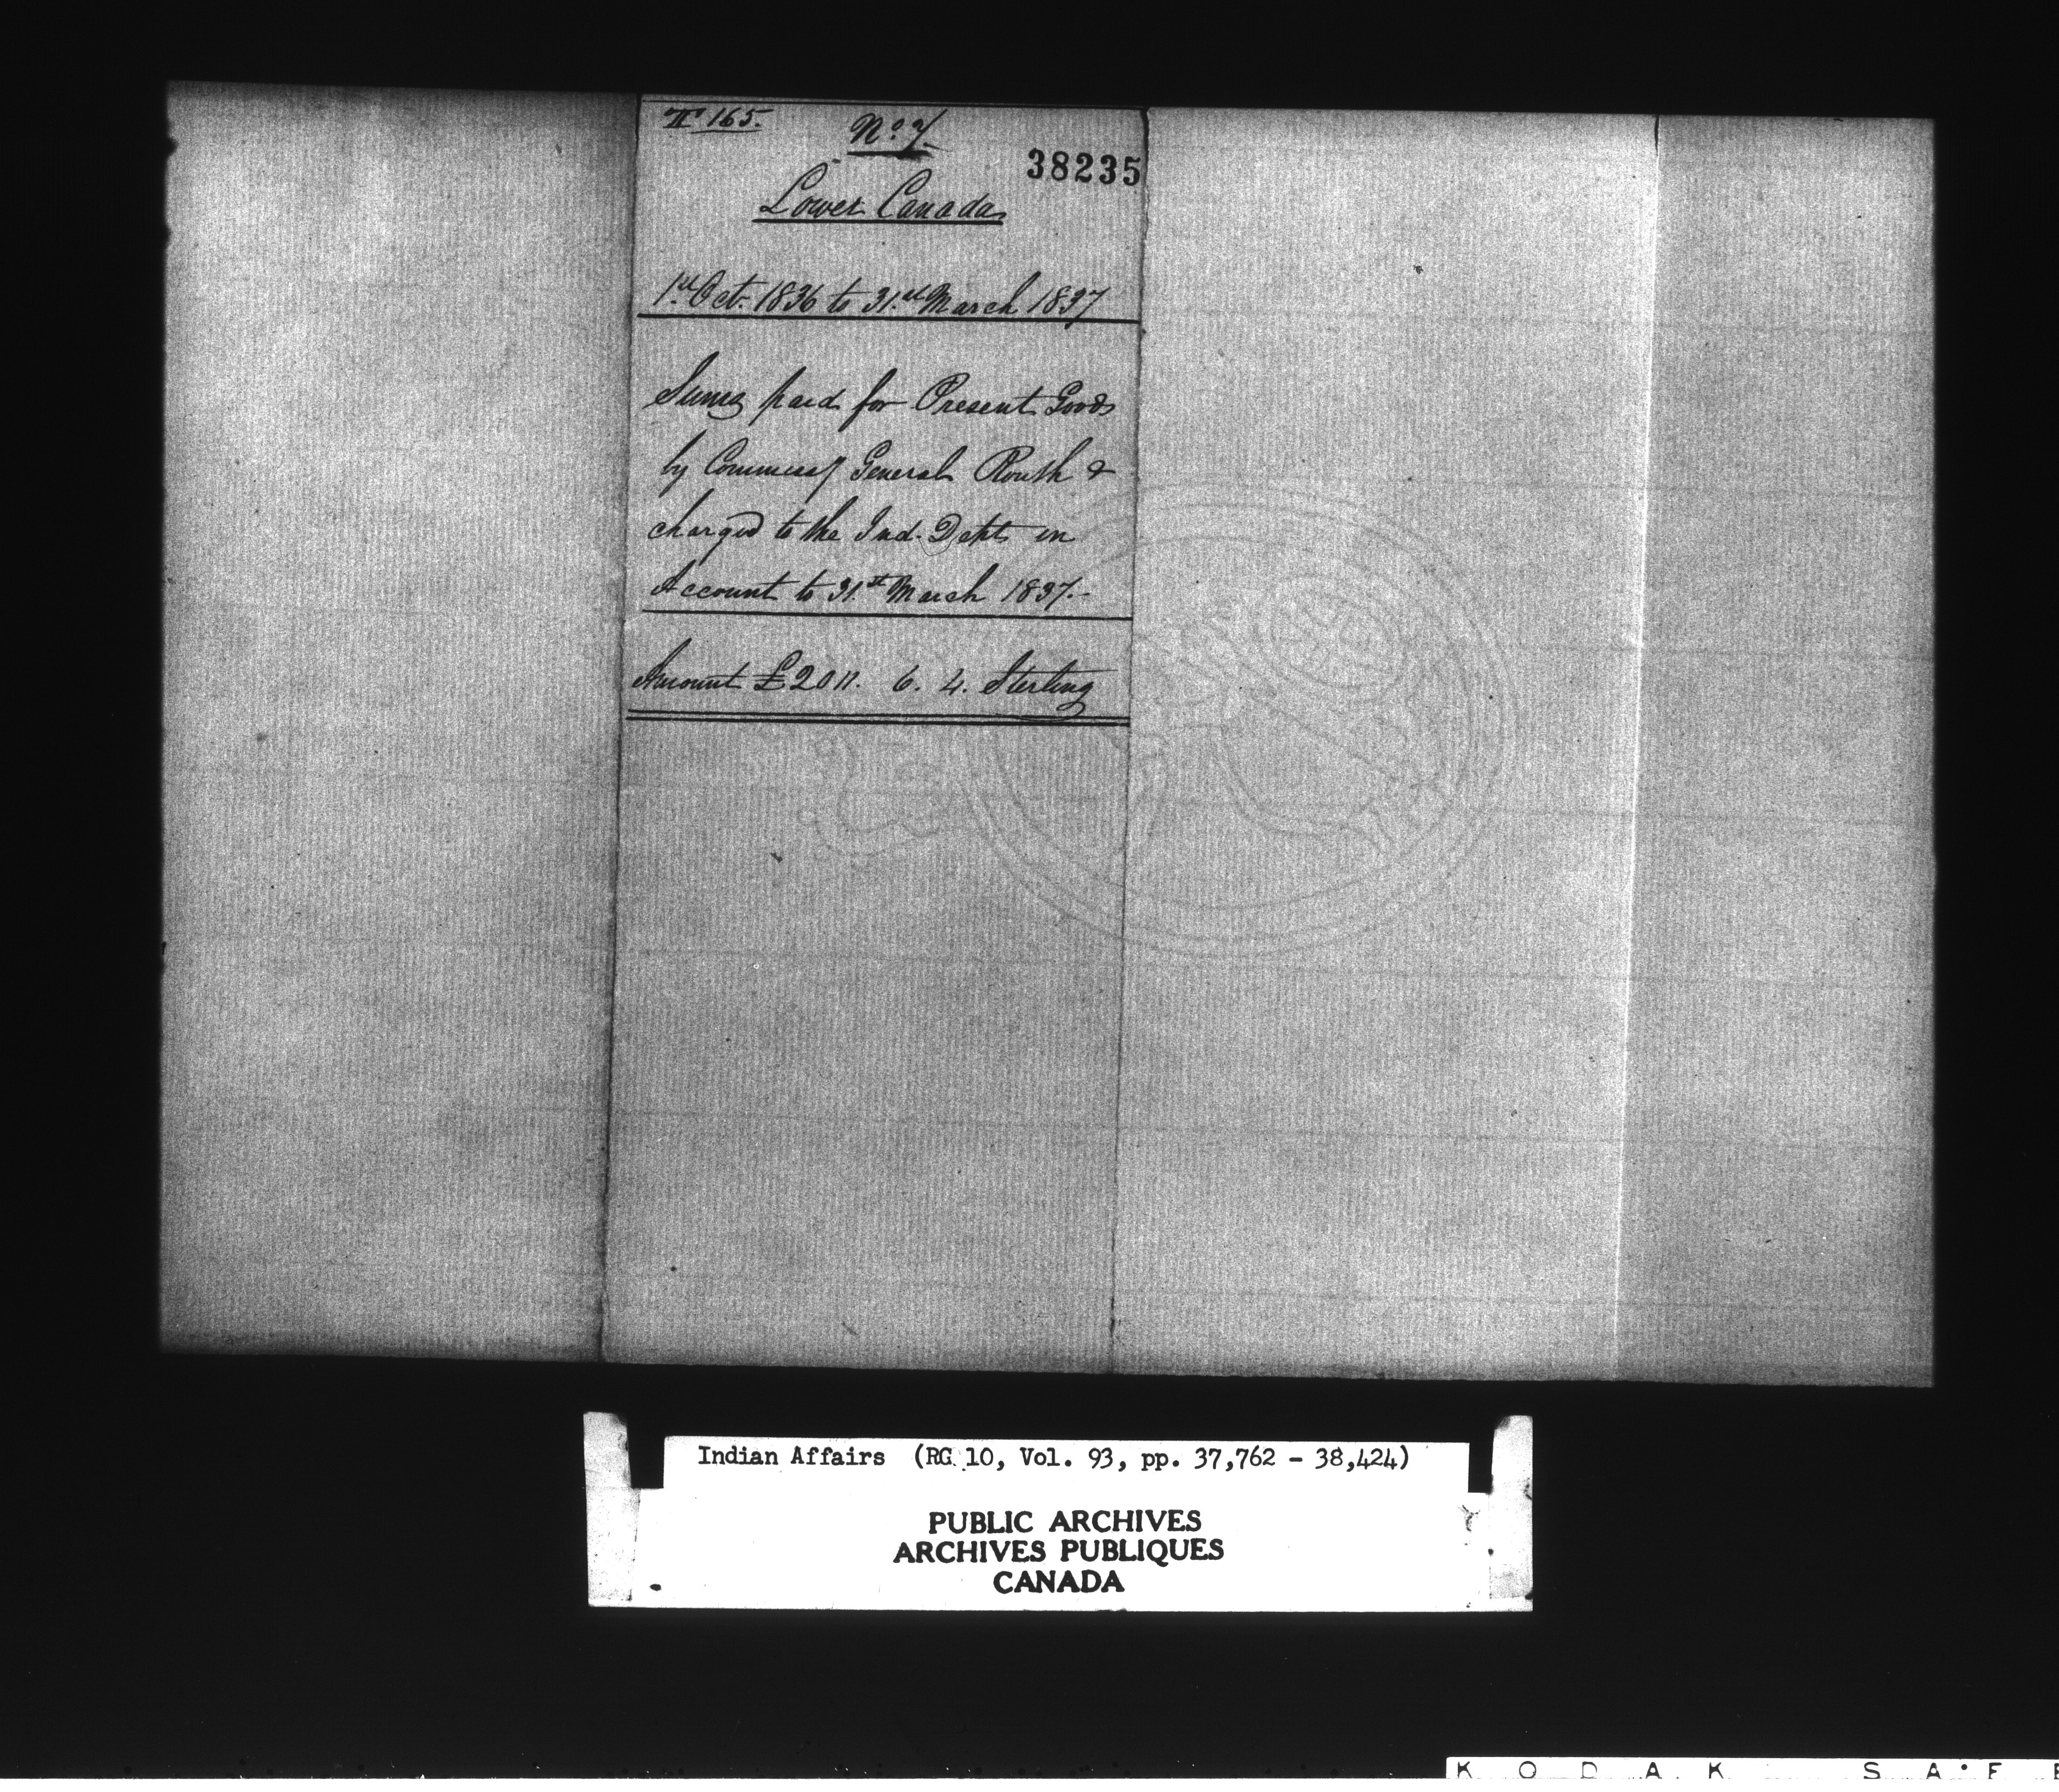 II 165.
No. 7.
38235
Lower Canada
1st Oct. 1836 to 31st March 1837
Sums paid for Present Goods
by Commissy General Routh &
charged to the Ind. Dept. in
Account to 31st March 1837.
Amount £2011. 6. 4. Sterling
Indian Affairs (RG 10, Vol. 93, pp. 37,762 - 38,424)
PUBLIC ARCHIVES
ARCHIVES PUBLIQUES
CANADA
KODAK SAFE